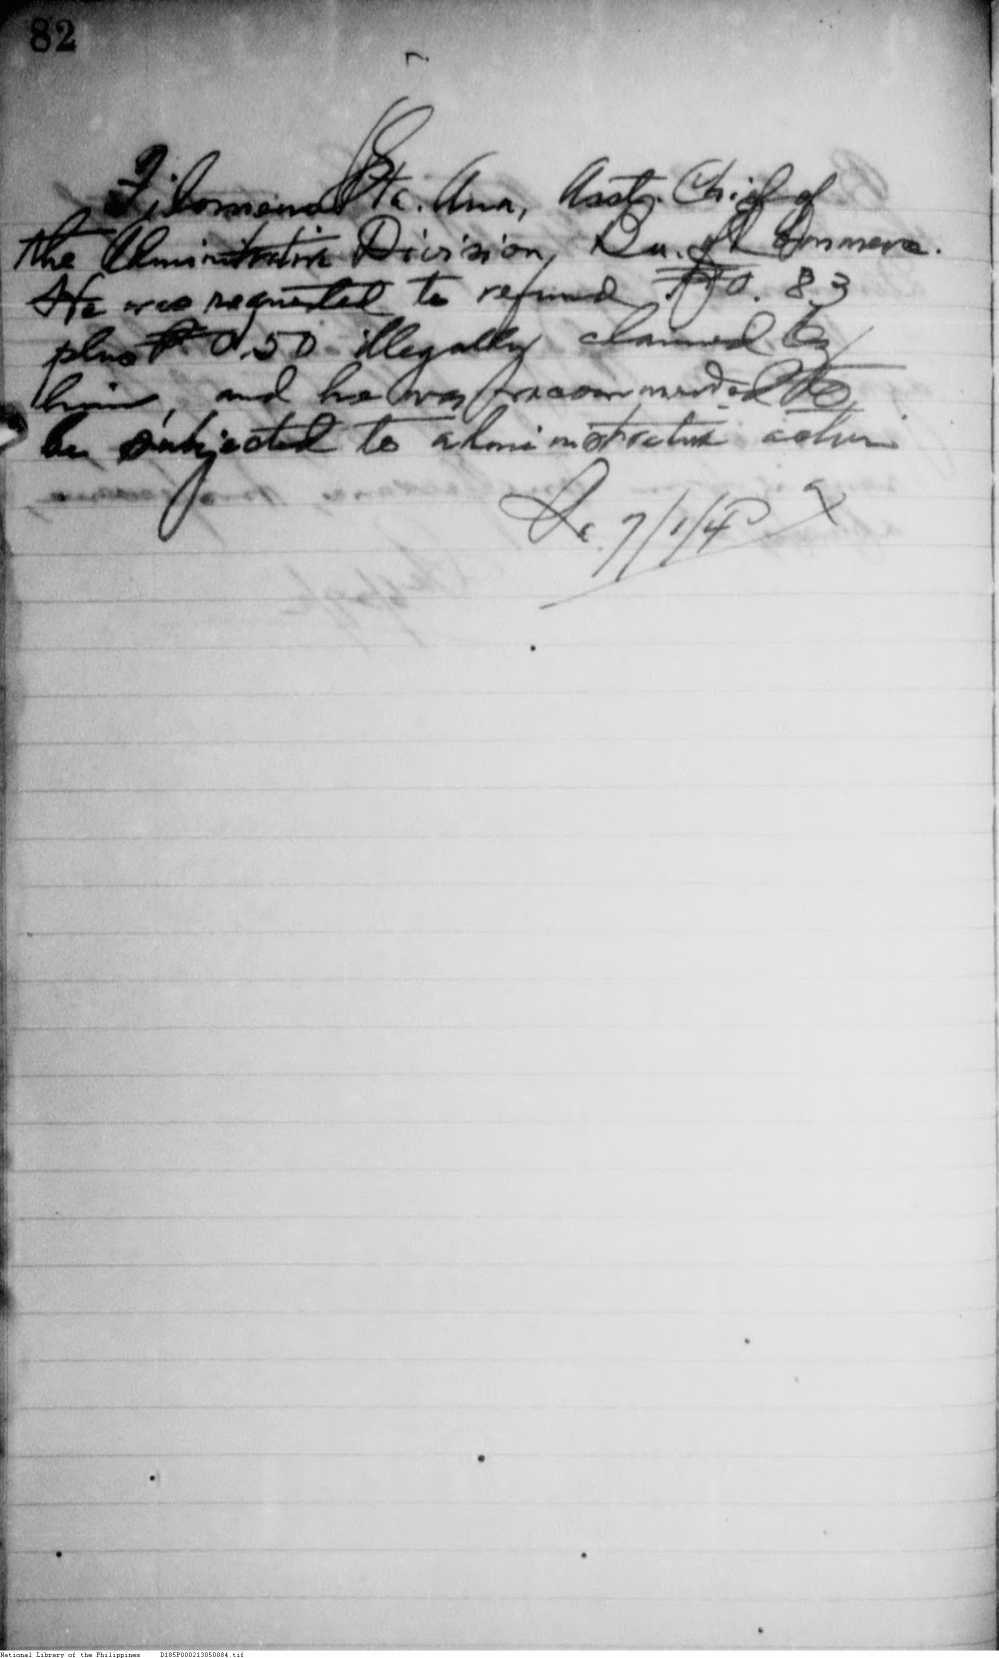 82
Filomeno Sta. Ana, Asst. Chief of
the Administrative Division, Bu. of Commerce.
He was requested to refund ₱0.83
plus ₱0.50 illegally claimed by
him, and he was recommended to
be subjected to administrative action
7/1/40
National Library of the Philippines D185P000213050084.tif